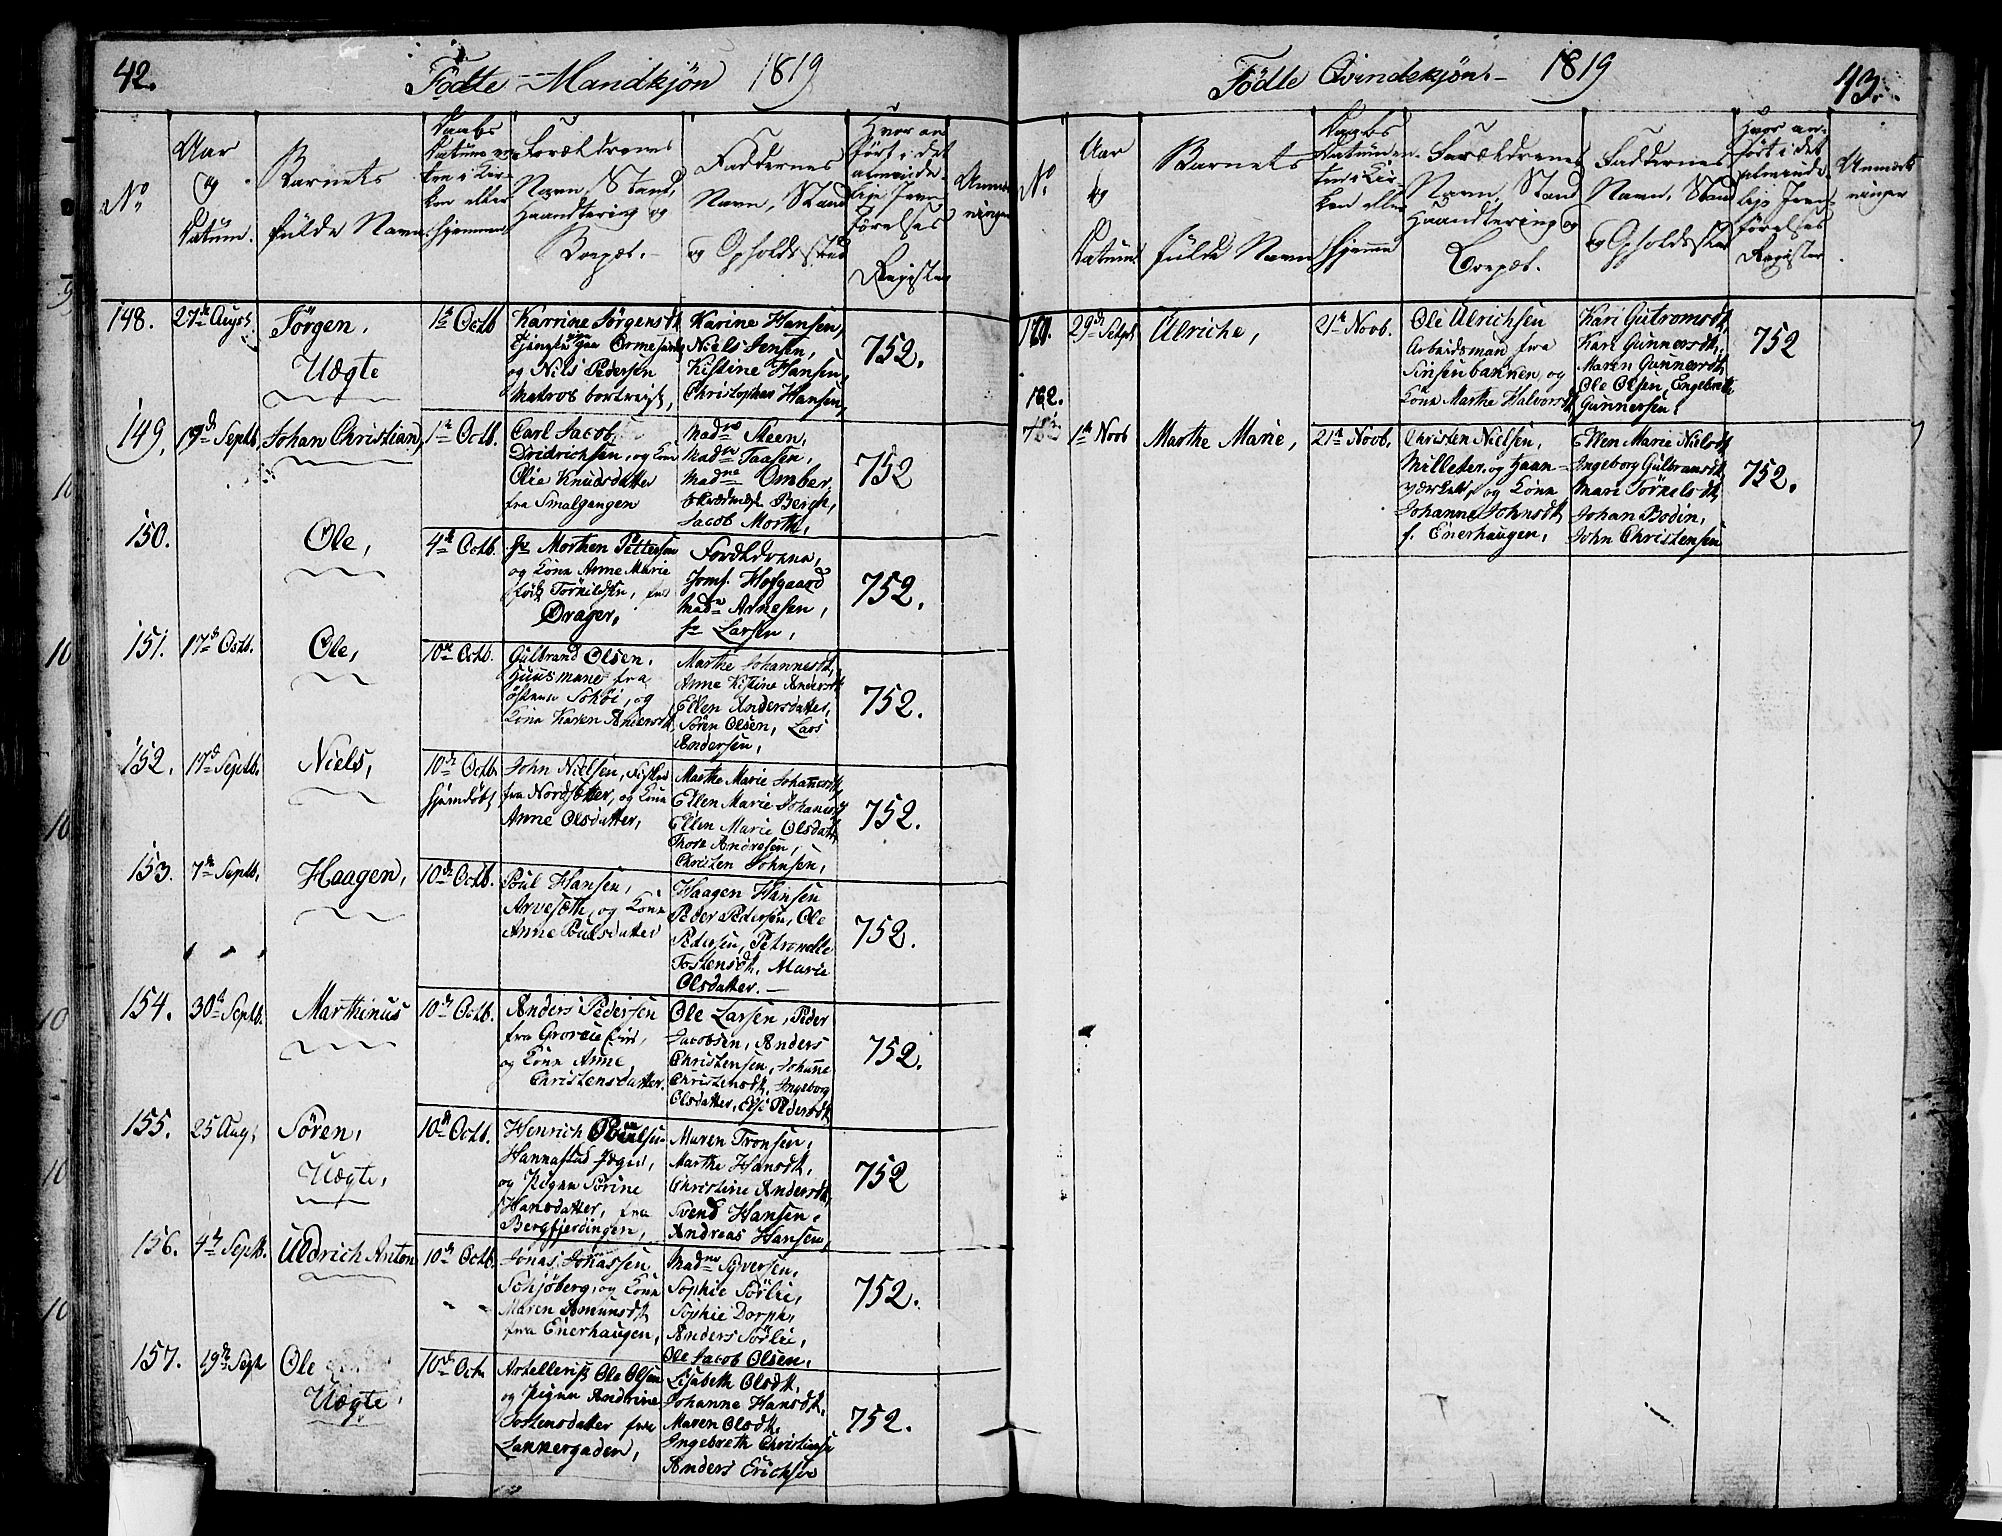 42.
Födte Mandkjön 1819
No
Aar og Datum.
Barnets fulde Navn
Daabs Datum en- ten i Kir- ken eller hjemme
Forældrenes Navn, Stand, Haandtering og Bopæl.
Faddernes Navn, Stand og Opholdssted
Hvor an- fört i det alminde- lige Jevn- förelses Register
148.
27de Aug.
Jörgen,
Uægte
1te Octb
og Nils Pedersen
Matros bortreist,
Karine Hansen,
Niels Jensen,
Kistine Hansen,
Christopher Hansen,
752.
149.
19de Septb.
Johan Christian,
1te Octb.
Carl Jacob
Didrichsen, og Kone
Olie Knudsdatter
fra Smalgangen
Madme Steen,
Madme
Madme Omber,
Jacob Morth,
752
150.
Ole,
4de Octb.
Morthen Pettersen
og Kone Anne Marie
Drager,
Forældrene,
Jomf. Hofgaard
Madme Arnesen,
Larsen,
752.
151.
17de Octb.
Ole,
10de Octb.
Gulbrand Olsen,
Huusmand fra
og
Kone Karen Andersdt
Marthe Johannesdt,
Anne Kistine Andersdt
Ellen Andersdatter,
Sören Olsen, Lars
Andersen,
752.
152.
17de Septb.
Niels,
10de Octb.
hjemdöbt
John Nielsen,
fra Nordsætter, og Kone
Anne Olsdatter,
Marthe Marie Johansdt,
Ellen Marie Johansdt
Ellen Marie Olsdatt,
Thore Andresen,
Christen Johnsen,
752.
153.
7de Septb.
Haagen,
10de Octb.
Poul Hansen,
Arvesæth, og Kone
Anne Poulsdatter
Haagen Hansen
Peder Pedersen, Ole
Pedersen, Petronelle
Tostensdt, Marie
Olsdatter.
752.
154.
30te Septb.
Marthinus
10de Octb.
Anders Pedersen
fra
og Kone Anne
Christensdatter.
Ole Larsen, Peder
Jacobsen, Anders
Christensen, Johanne
Christensdt, Ingeborg
Olsdatter, Else Pedersdt
752.
155.
25 Aug.
Sören,
Uægte,
10de Octb.
Henrich
og Pigen Sörine
Hansdatter, fra
Bergfjerdingen,
Maren Tronsen,
Marthe Hansdt,
Christine Andersdt,
Svend Hansen,
Andreas Hansen,
752
156.
4de Septb.
Uldrich Anton
10de Octb.
Jonas Jonassen
Schjöberg, og Kone
Maren Amundsdt
fra Enerhaugen,
Madme Syversen,
Sophie Sörlie,
Sophie Dorph,
Anders Sörlie,
Ole Jacob Olsen,
752.
157.
19de Sept
Ole
Uægte,
10de Oct
Artellerist Ole Olsen
og Pigen Andrine
Tostensdatter fra
Lakkergaden,
Lisabeth Olsdt,
Johanne Hansdt,
Maren Olsdt,
Ingebreth Christiansen
Anders Erichsen
752.
43.
Födte Qvindekjön 1819
No
Aar og Datum
Barnets fulde Navn
Daabs Datum en- ten i Kir- ken eller hjemme
Forældrenes Navn, Stand Haandtering og Bopæl.
Faddernes Navn, Stand og Opholdssted
Hvor an- fört i det alminde- lige Jevn- förelses Register
Anmærk- ninger
29de Septb
Ulriche,
21de Novb.
Ole Ulrichsen
Arbeidsmand fra
Sinsenbakken, og
Kone Marthe Halvorsdt
Kari Gutromsdt,
Kari Gunnersdt,
Maren Gunnersdt,
Ole Olsen, Engebreth
Gunnersen.
752
182.
1te Novb
Marthe Marie,
21de Novb.
Christen Nielsen,
og Kone
Johanne Johnsdt
f. Enerhaugen,
Ellen Marie Nielsdt
Ingeborg Gulbransdt
Mari
Johan Bodin,
John Christensen
752.